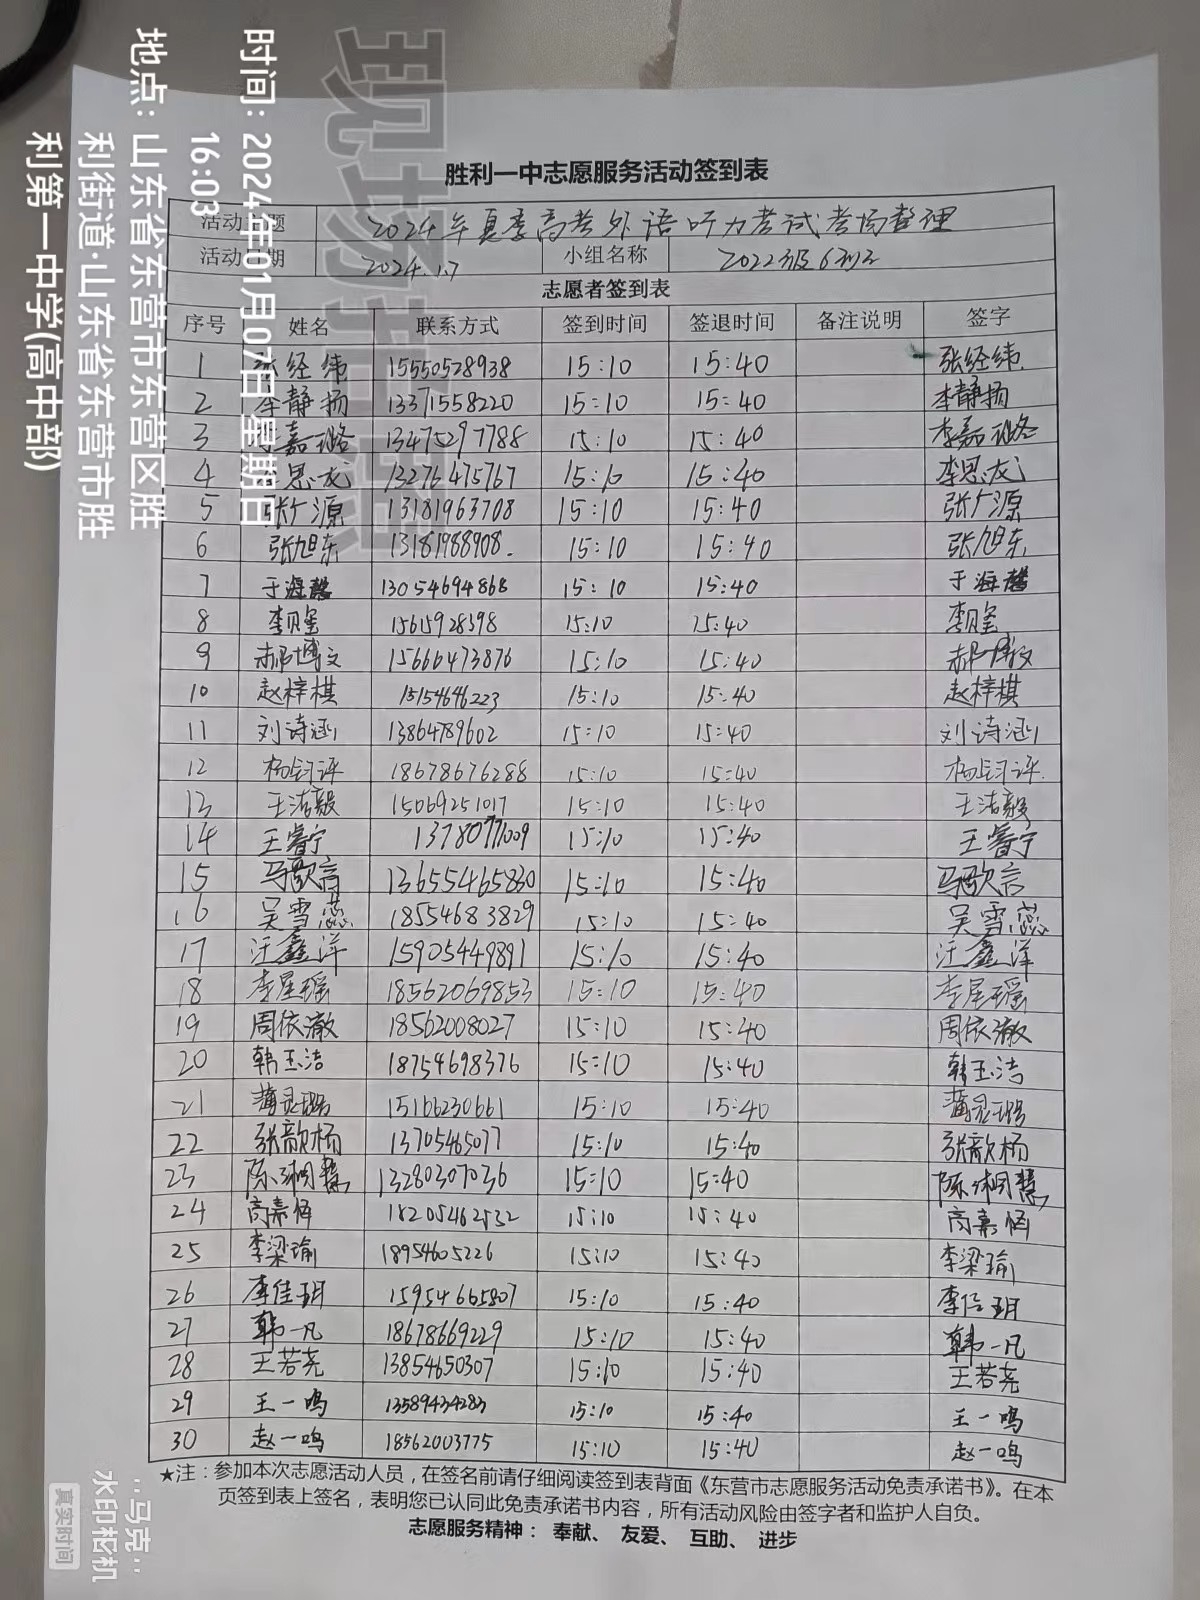 胜利一中志愿服务活动签到表
活动主题 2024年夏季高考外语听力考试考场整理
活动日期 2024.1.7 小组名称 2022级6班
志愿者签到表
序号 姓名 联系方式 签到时间 签退时间 备注说明 签字
1 张经纬 15550528938 15:10 15:40 张经纬
2 李静扬 13371558220 15:10 15:40 李静扬
3 李嘉璐 13475297788 15:10 15:40 李嘉璐
4 李思龙 13276475767 15:10 15:40 李思龙
5 张广源 13181963708 15:10 15:40 张广源
6 张旭东 13181988908 15:10 15:40 张旭东
7 于海馨 13054694868 15:10 15:40 于海馨
8 15615928398 15:10 15:40
9 郝博文 15666473876 15:10 15:40 郝博文
10 赵梓棋 15154646223 15:10 15:40 赵梓棋
11 刘诗涵 13864789602 15:10 15:40 刘诗涵
12 18678676288 15:10 15:40
13 王洁毅 15069251017 15:10 15:40 王洁毅
14 王睿宁 13780771009 15:10 15:40 王睿宁
15 马歌言 13655465830 15:10 15:40 马歌言
16 吴雪蕊 18554683829 15:10 15:40 吴雪蕊
17 汪鑫洋 15905449891 15:10 15:40 汪鑫洋
18 李星瑶 18562069853 15:10 15:40 李星瑶
19 周依澈 18562008027 15:10 15:40 周依澈
20 韩玉洁 18754698376 15:10 15:40 韩玉洁
21 蒲灵璐 15166230661 15:10 15:40 蒲灵璐
22 张歆杨 13705465077 15:10 15:40 张歆杨
23 陈湘慧 13280307036 15:10 15:40 陈湘慧
24 高嘉恒 18205462532 15:10 15:40 高嘉恒
25 李梁瑜 18954605226 15:10 15:40 李梁瑜
26 李佳玥 15954665807 15:10 15:40 李佳玥
27 韩一凡 18678669229 15:10 15:40 韩一凡
28 王若尧 13854650307 15:10 15:40 王若尧
29 王一鸣 13589434283 15:10 15:40 王一鸣
30 赵一鸣 18562003775 15:10 15:40 赵一鸣
★注：参加本次志愿活动人员，在签名前请仔细阅读签到表背面《东营市志愿服务活动免责承诺书》。在本
页签到表上签名，表明您已认同此免责承诺书内容，所有活动风险由签字者和监护人自负。
志愿服务精神： 奉献、 友爱、 互助、 进步
现场拍照
时间：2024年01月07日 星期日
16:03
地点：山东省东营市东营区胜
利街道·山东省东营市胜
利第一中学(高中部)
马克
水印相机
真实时间